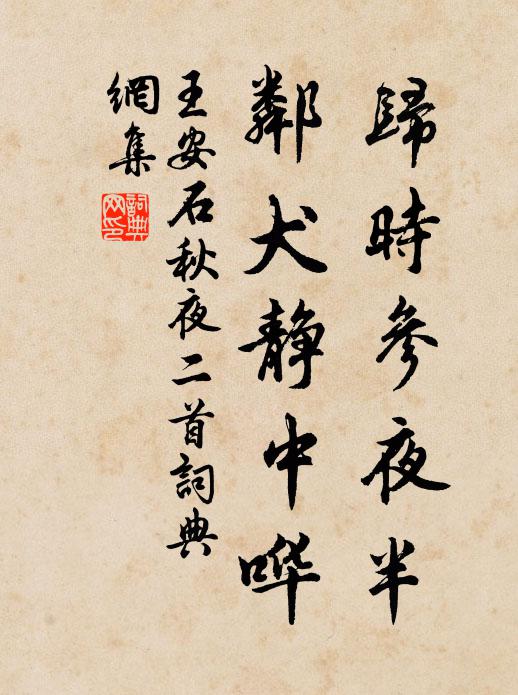 歸時參夜半
鄰犬靜中哗
王安石秋夜二首詞典
網集
詞典
网印